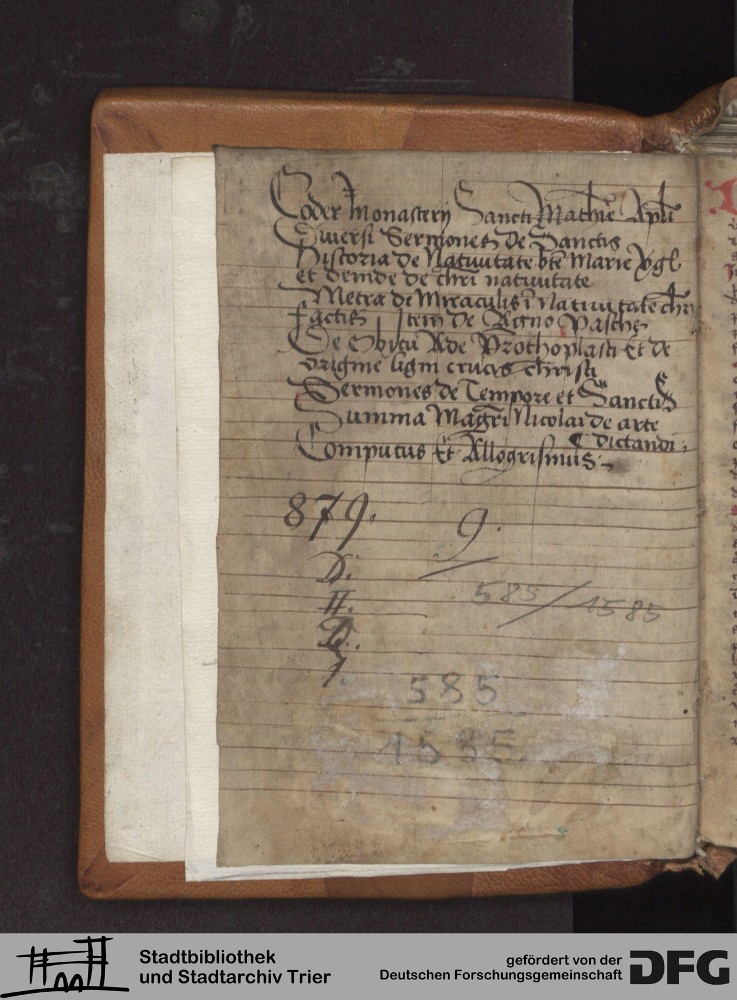 Codex Monasterij Sancti Mathie Apli
Diuersi Sermones de Sanctis
Historia de Natiuitate bte Marie Vgl
et deinde de chri natiuitate
Metra de Miraculis i Natiuitate chri
factis Item de Agno Pasche
De Obitu Ade Prothoplasti et de
origine ligni crucis christi
Sermones de Tempore et Sanctis
Summa Magri Nicolai de arte
dictandi
Computus Et Allogrismus
879. 9.
D.
II.
585/1585
D.
7.
585
1585
Stadtbibliothek
und Stadtarchiv Trier
gefördert von der
Deutschen Forschungsgemeinschaft
DFG